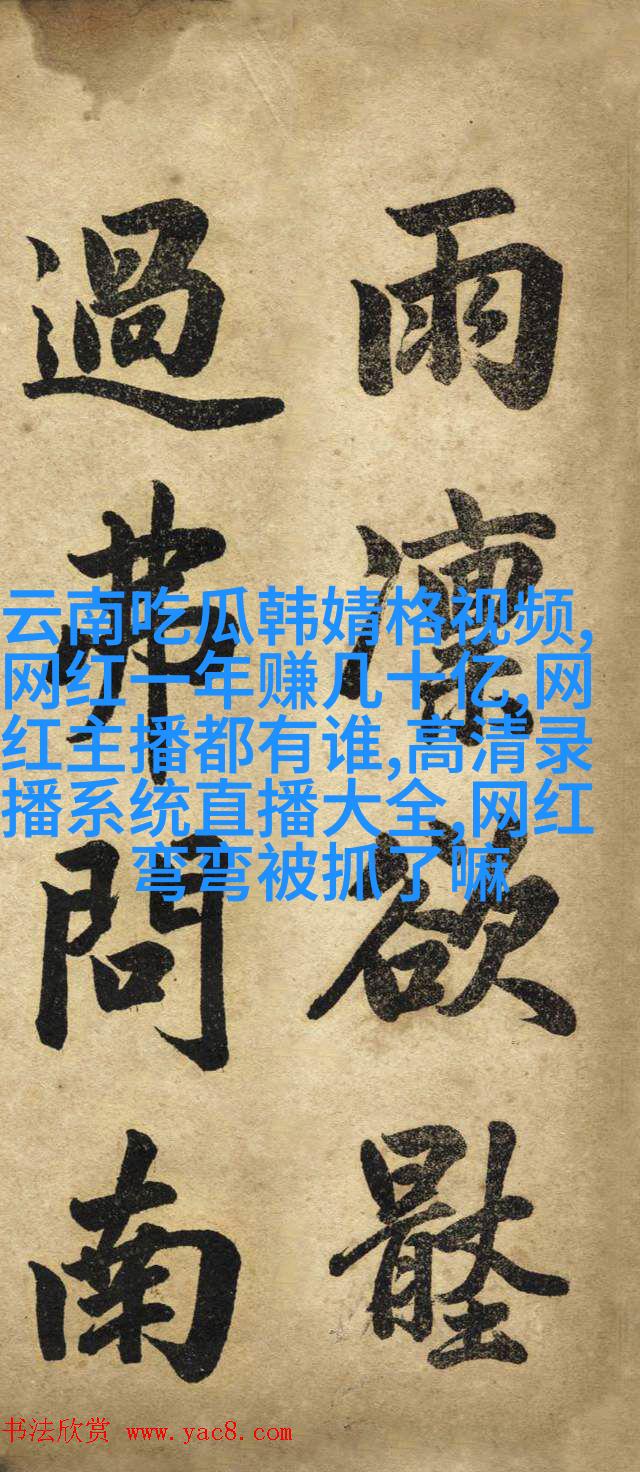 雨凛欲
過弗問南
云南吃瓜韩婧格视频,
网红一年赚几十亿,网
红主播都有谁,高清录
播系统直播大全,网红
弯弯被抓了嘛
书法欣赏 www.yac8.com